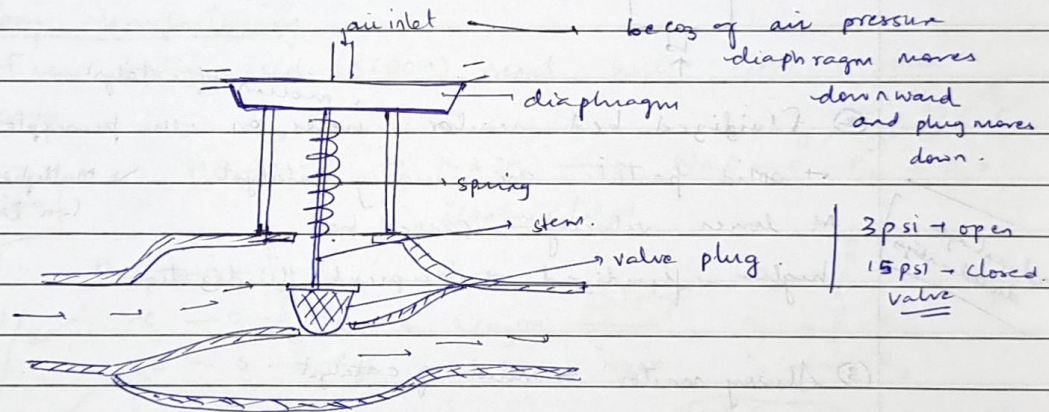 air inlet → becoz of air pressure
diaphragm moves
downward
and plug moves
down.
diaphragm
spring
stem.
valve plug.
3psi → open
15psi → closed.
valve